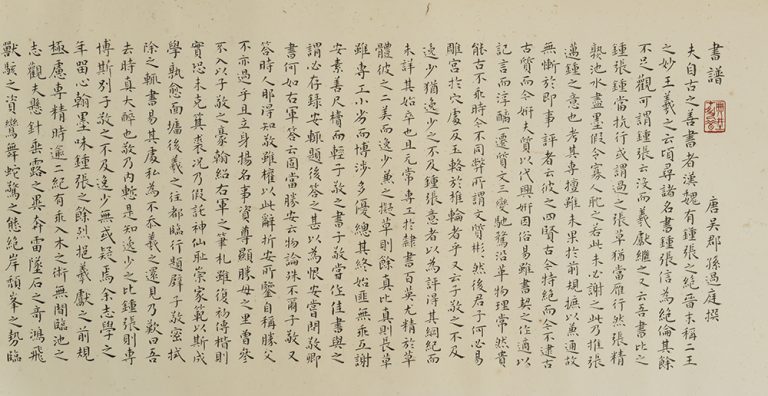 書譜
唐吳郡孫過庭撰
夫自古之善書者漢魏有鍾張之絕晉末稱二王
之妙王羲之云頃尋諸名書鍾張信為絕倫其餘
不足觀可謂鍾張云沒而羲獻繼之又云吾書比之
鍾張鍾當抗行或謂過之張草猶當雁行然張精
熟池水盡墨假令寡人耽之若此未必謝之此乃推張
邁鍾之意也考其專擅雖未果於前規摭以兼通故
無慚於即事評者云彼之四賢古今特絕而今不逮古
古質而今妍夫質以代興妍因俗易雖書契之作適以
記言而淳醨一遷質文三變馳騖沿革物理常然貴
能古不乖時今不同弊所謂文質彬〻然後君子何必易
雕宮於穴處反玉輅於椎輪者乎又云子敬之不及
逸少猶逸少之不及鍾張意者以為評得其綱紀而
未詳其始卒也且元常專工於隸書百英尤精於草
體彼之二美而逸少兼之擬草則餘真比真則長草
雖專工小劣而博涉多優總其終始匪無乖互謝
安素善尺牘而輕子敬之書子敬嘗作佳書與之
謂必存錄安輒題後答之甚以為恨安嘗問敬卿
書何如右軍答云固當勝安云物論殊不爾子敬又
答時人那得知敬雖權以此辭折安所鑒自稱勝父
不亦過乎且立身揚名事資尊顯勝母之里曾參
不入以子敬之豪翰紹右軍之筆札雖復粗傳楷則
實恐未克箕裘況乃假託神仙恥崇家範以斯成
學孰愈面牆後羲之往都臨行題壁子敬密拭
除之輒書易其處私為不忝羲之還見乃歎曰吾
去時真大醉也敬乃內慚是知逸少之比鍾張則專
博斯別子敬之不及逸少無或疑焉余志學之
年留心翰墨味鍾張之餘烈挹羲獻之前規
極慮專精時逾二紀有乖入木之術無間臨池之
志觀夫懸針垂露之異奔雷墜石之奇鴻飛
獸駭之資鸞舞蛇驚之態絕岸頹峯之勢臨